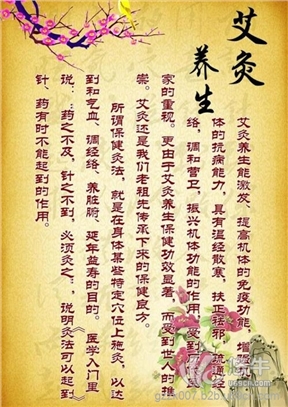 艾灸
养生
艾灸养生能激发、提高机体的免疫功能，增强
体的抗病能力，具有温经散寒，扶正祛邪，疏通经
络，调和营卫，振兴机体功能的作用，受到历
家的重视。更由于艾灸养生保健功效显著，而受到世人的推
崇。艾灸还是我们老祖先传承下来的保健良方。
所谓保健灸法，就是在身体某些特定穴位上施灸，以达
到和气血，调经络、养脏腑、延年益寿的目的。《医学入门里
说：：药之不及，针之不到，必须灸之：，说明灸法可以起到
针、药有时不能起到的作用。